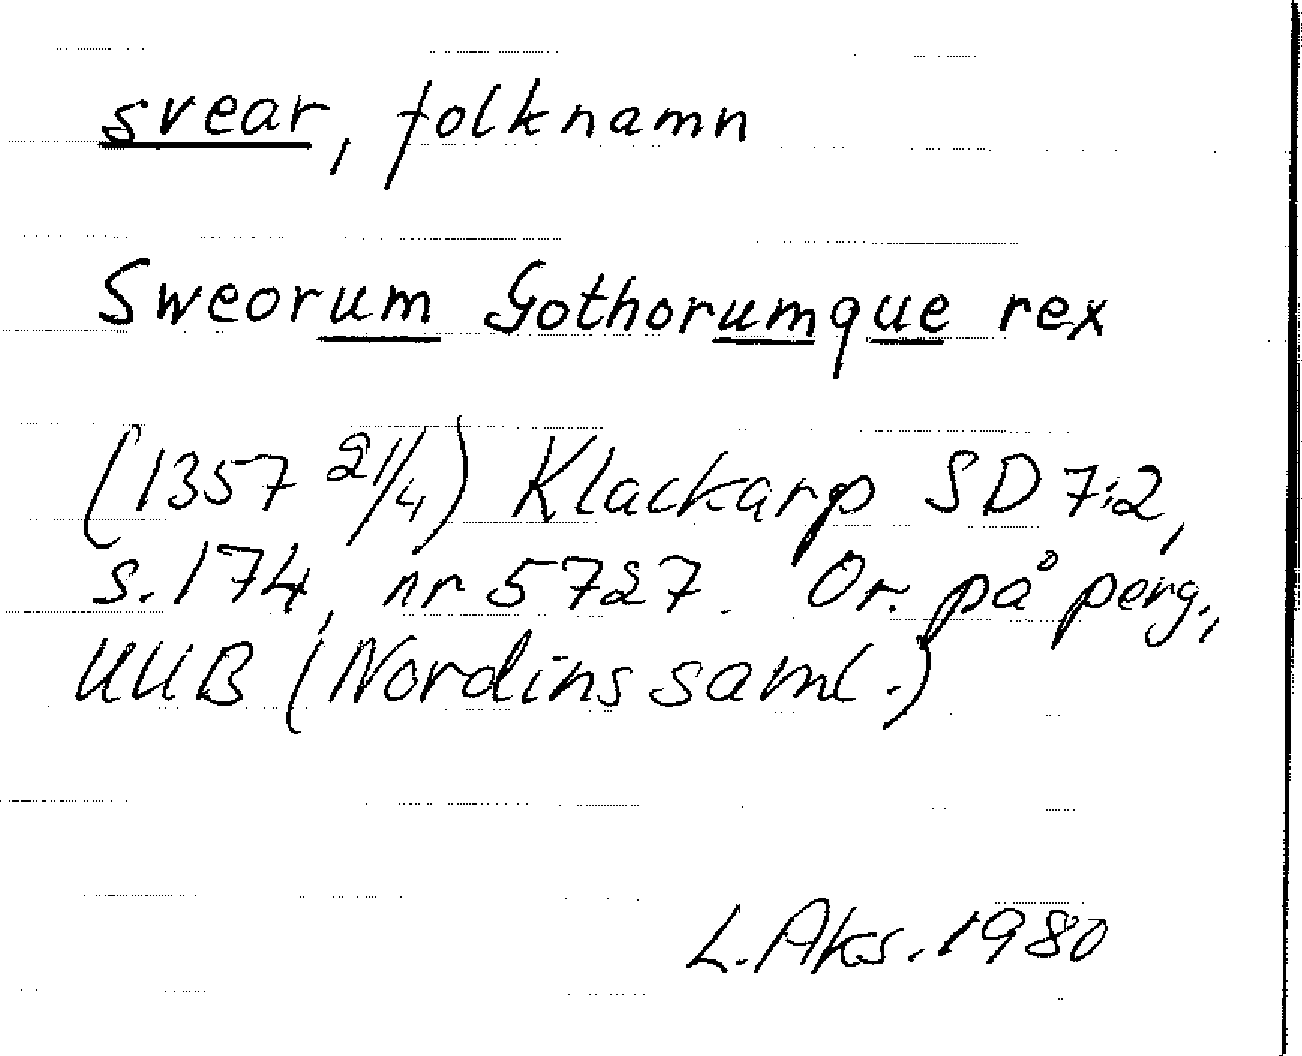 svear, folknamn
Sweorum Gothorumque rex
(1357 21/4) Klackarp SD 7:2,
s. 174, nr 5727. Or. på perg.,
UUB (Nordins saml.)
L. Aks. 1980